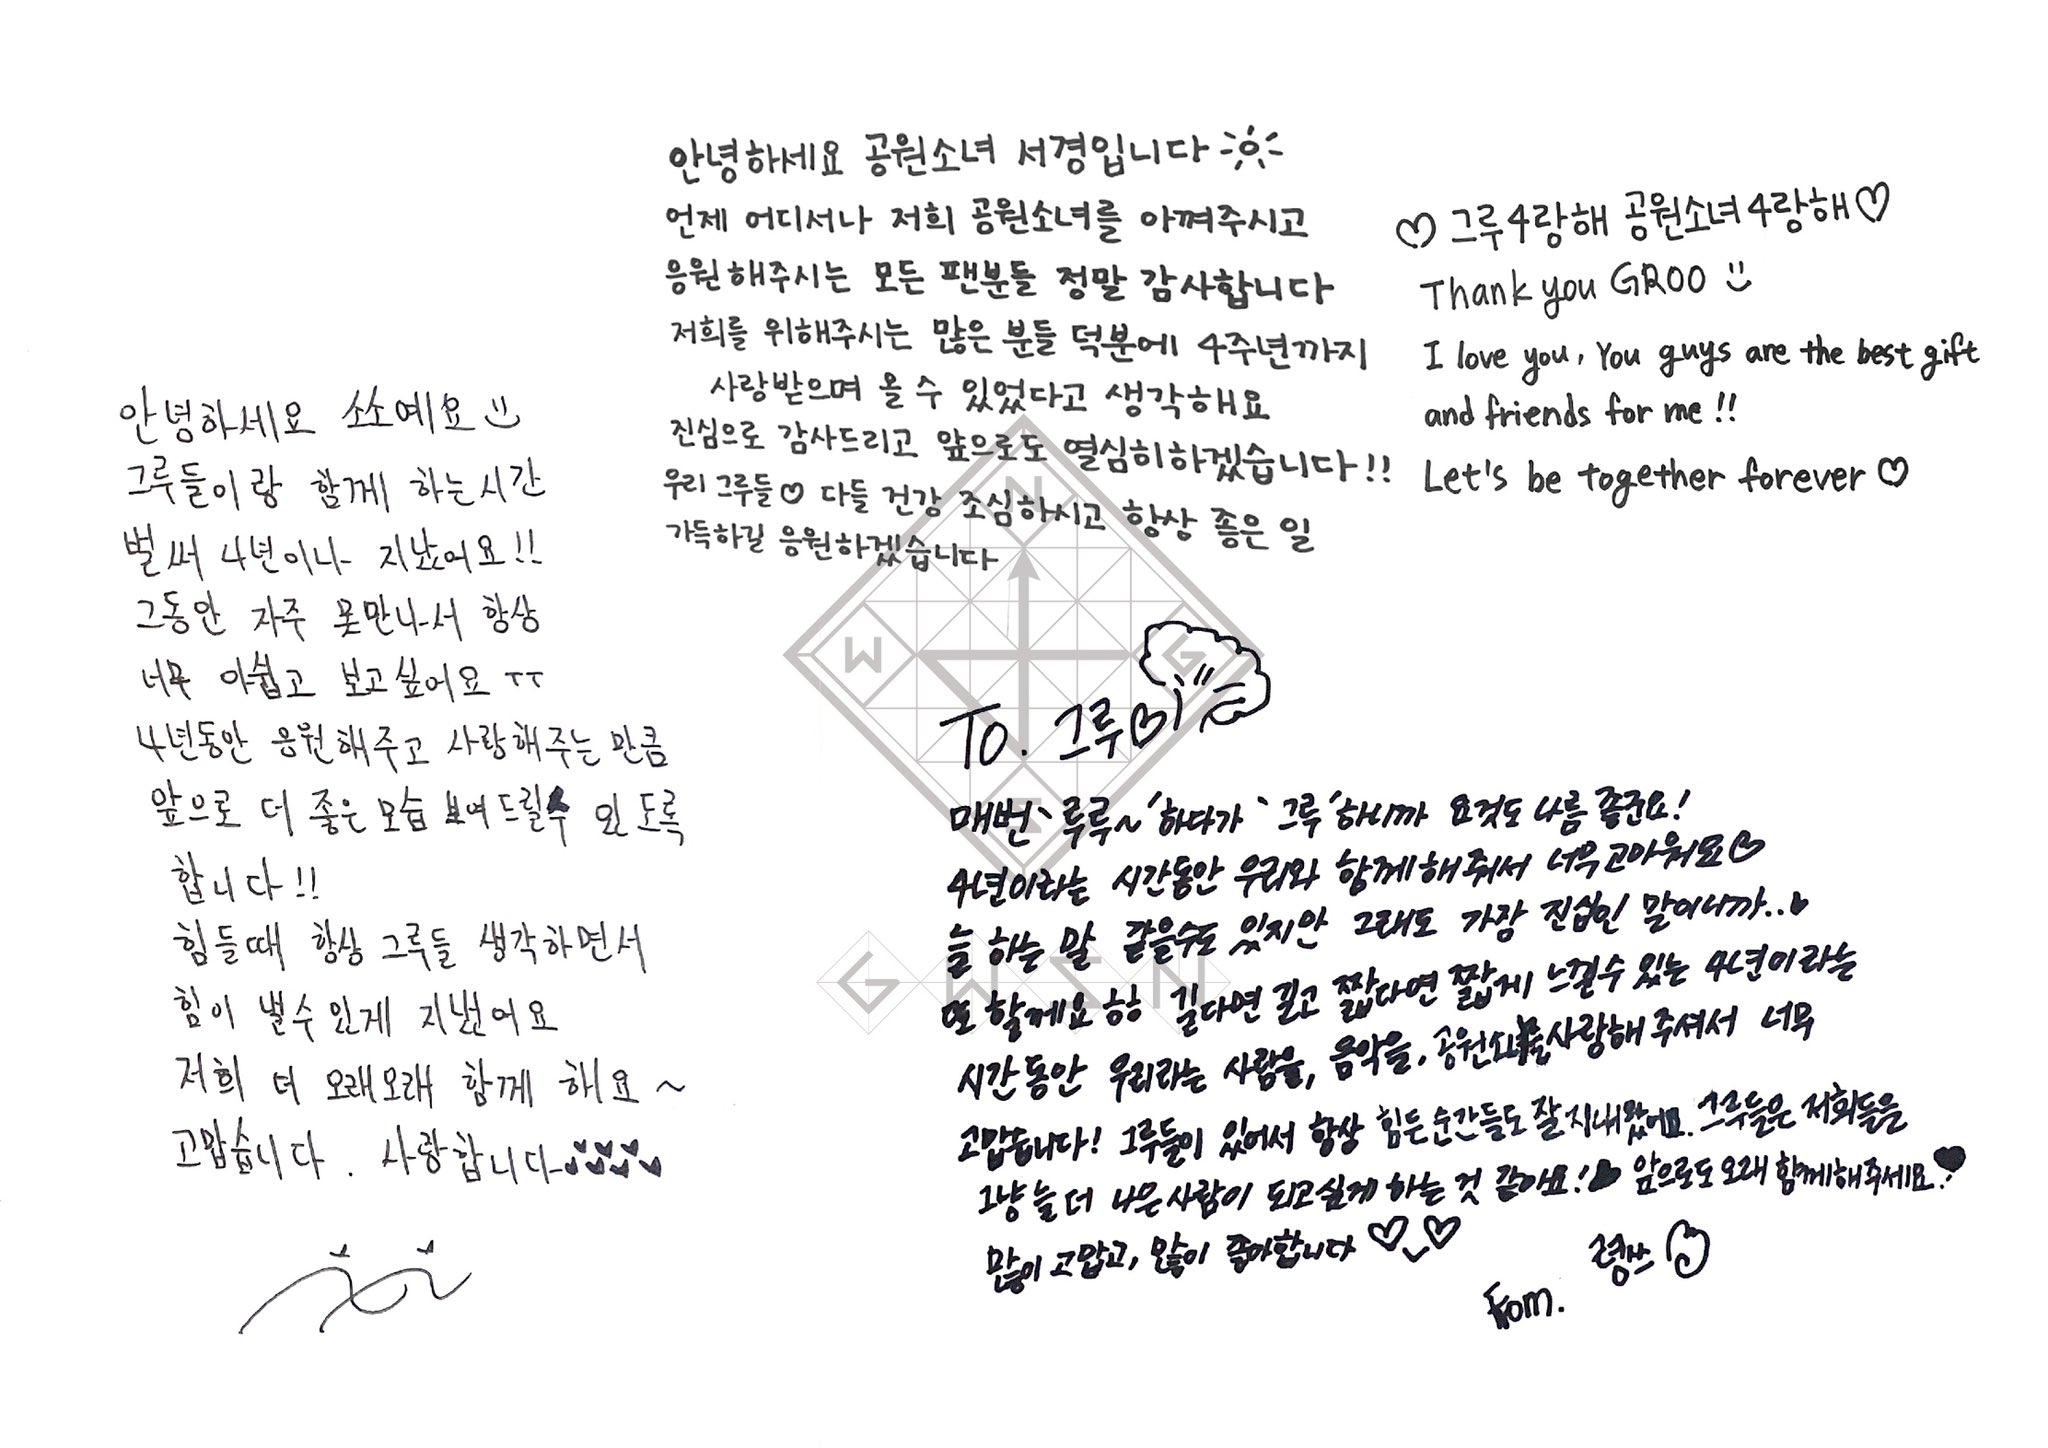 안녕하세요 쏘소예요
그루들이랑 함께 하는시간
벌써 4년이나 지났어요!!
그동안 자주 못만나서 항상
너무 아쉽고 보고싶어요 ㅜㅜ
4년동안 응원해주고 사랑해주는 만큼
앞으로 더 좋은 모습 보여드릴수 있도록
합니다!!
힘들때 항상 그루들 생각하면서
힘이 낼수있게 지냈어요
저희 더 오래오래 함께 해요~
고맙습니다. 사랑합니다
안녕하세요 공원소녀 서경입니다
언제 어디서나 저희 공원소녀를 아껴주시고
응원해주시는 모든 팬분들 정말 감사합니다
저희를 위해주시는 많은 분들 덕분에 4주년까지
사랑받으며 올 수 있었다고 생각해요
진심으로 감사드리고 앞으로도 열심히하겠습니다!!
우리 그루들♡ 다들 건강 조심하시고 항상 좋은 일
가득하길 응원하겠습니다
♡그루4랑해 공원소녀4랑해♡
Thank you GROO
I love you, You guys are the best gift
and friends for me!!
Let's be together forever♡
N
W
G
To. 그루♡
매번 '루루~'하다가 '그루'하니까 요것도 나름 좋군요!
4년이라는 시간동안 우리와 함께해줘서 너무고마워요♡
늘 하는 말 같을수도 있지만 그래도 가장 진심인 말이니까..♥
또 할께요ㅎㅎ 길다면 길고 짧다면 짧게 느낄수 있는 4년이라는
시간동안 우리라는 사람을, 음악을, 공원소녀를사랑해주셔서 너무
고맙습니다! 그루들이 있어서 항상 힘든순간들도 잘 지내왔어요. 그루들은 저희들을
그냥 늘 더 나은사람이 되고싶게 하는 것 같아요!♥ 앞으로도 오래 함께해주세요!♥
많이 고맙고, 많이 좋아합니다 ♡_♡
From. 령쓰
GWSN